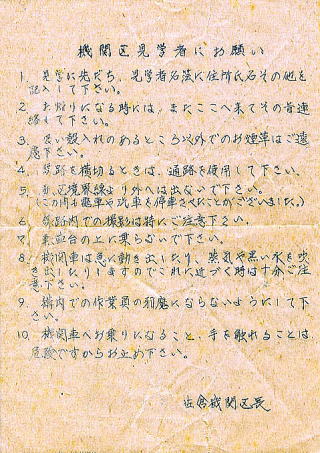 機関区見学者にお願い
1. 見学に先だち、見学者名簿に住所氏名その他を
記入して下さい。
2. お帰りになる時には、またここへ来てその旨連
絡して下さい。
3. 吸い殻入れのあるところ以外でのお煙草はご遠
慮下さい。
4. 線路を横切るときは、通路を使用して下さい。
5. 区境界線より外へは出ないで下さい。
(この内も電車や汽車を停車させたことがございました。)
6. 線路内での撮影は特にご注意下さい。
7. 転車台の上に乗らないで下さい。
8. 機関車は急に動き出したり、蒸気や黒い水を吹
き出したりしますのでこれに近づく時は十分ご注
意下さい。
9. 構内での作業員の邪魔にならないようにして下
さい。
10. 機関車へお乗りになること、手を触れることは
危険ですからお止め下さい。
佐倉機関区長